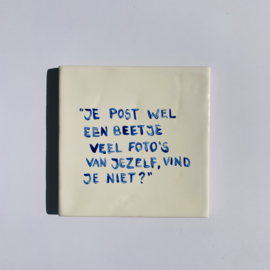 "JE POST WEL
EEN BEETJE
VEEL FOTO'S
VAN JEZELF, VIND
JE NIET?"